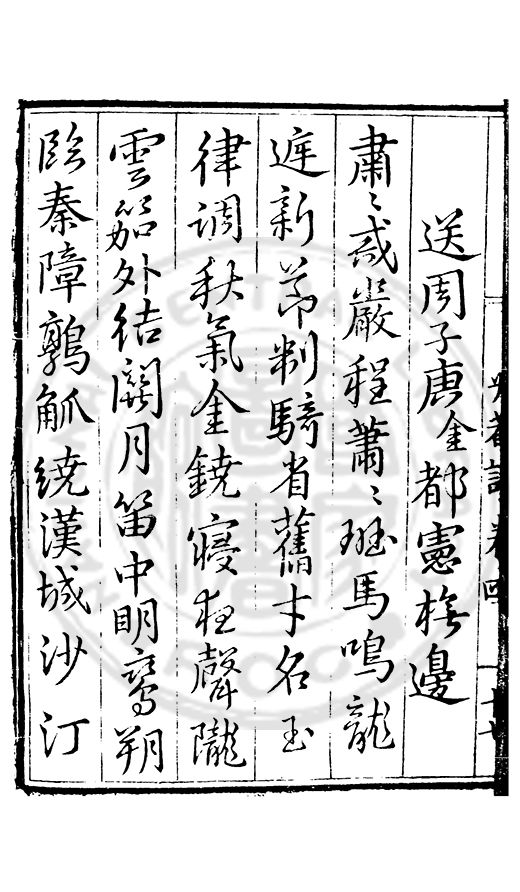 送周子庚金都憲撫邊
肅〻戒嚴程蕭〻班馬鳴龍
庭新節制騎省舊才名玉
律調秋氣金鐃寢夜聲隴
雲笳外結關月笛中明鸞朔
臨秦障鶉觚繞漢城沙汀